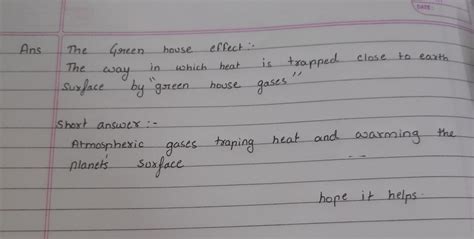 DATE:
Ans The Green house effect:-
The way in which heat is trapped close to earth
surface by "green house gases"
Short answer :-
Atmospheric gases traping heat and warming the
planet's surface
hope it helps.